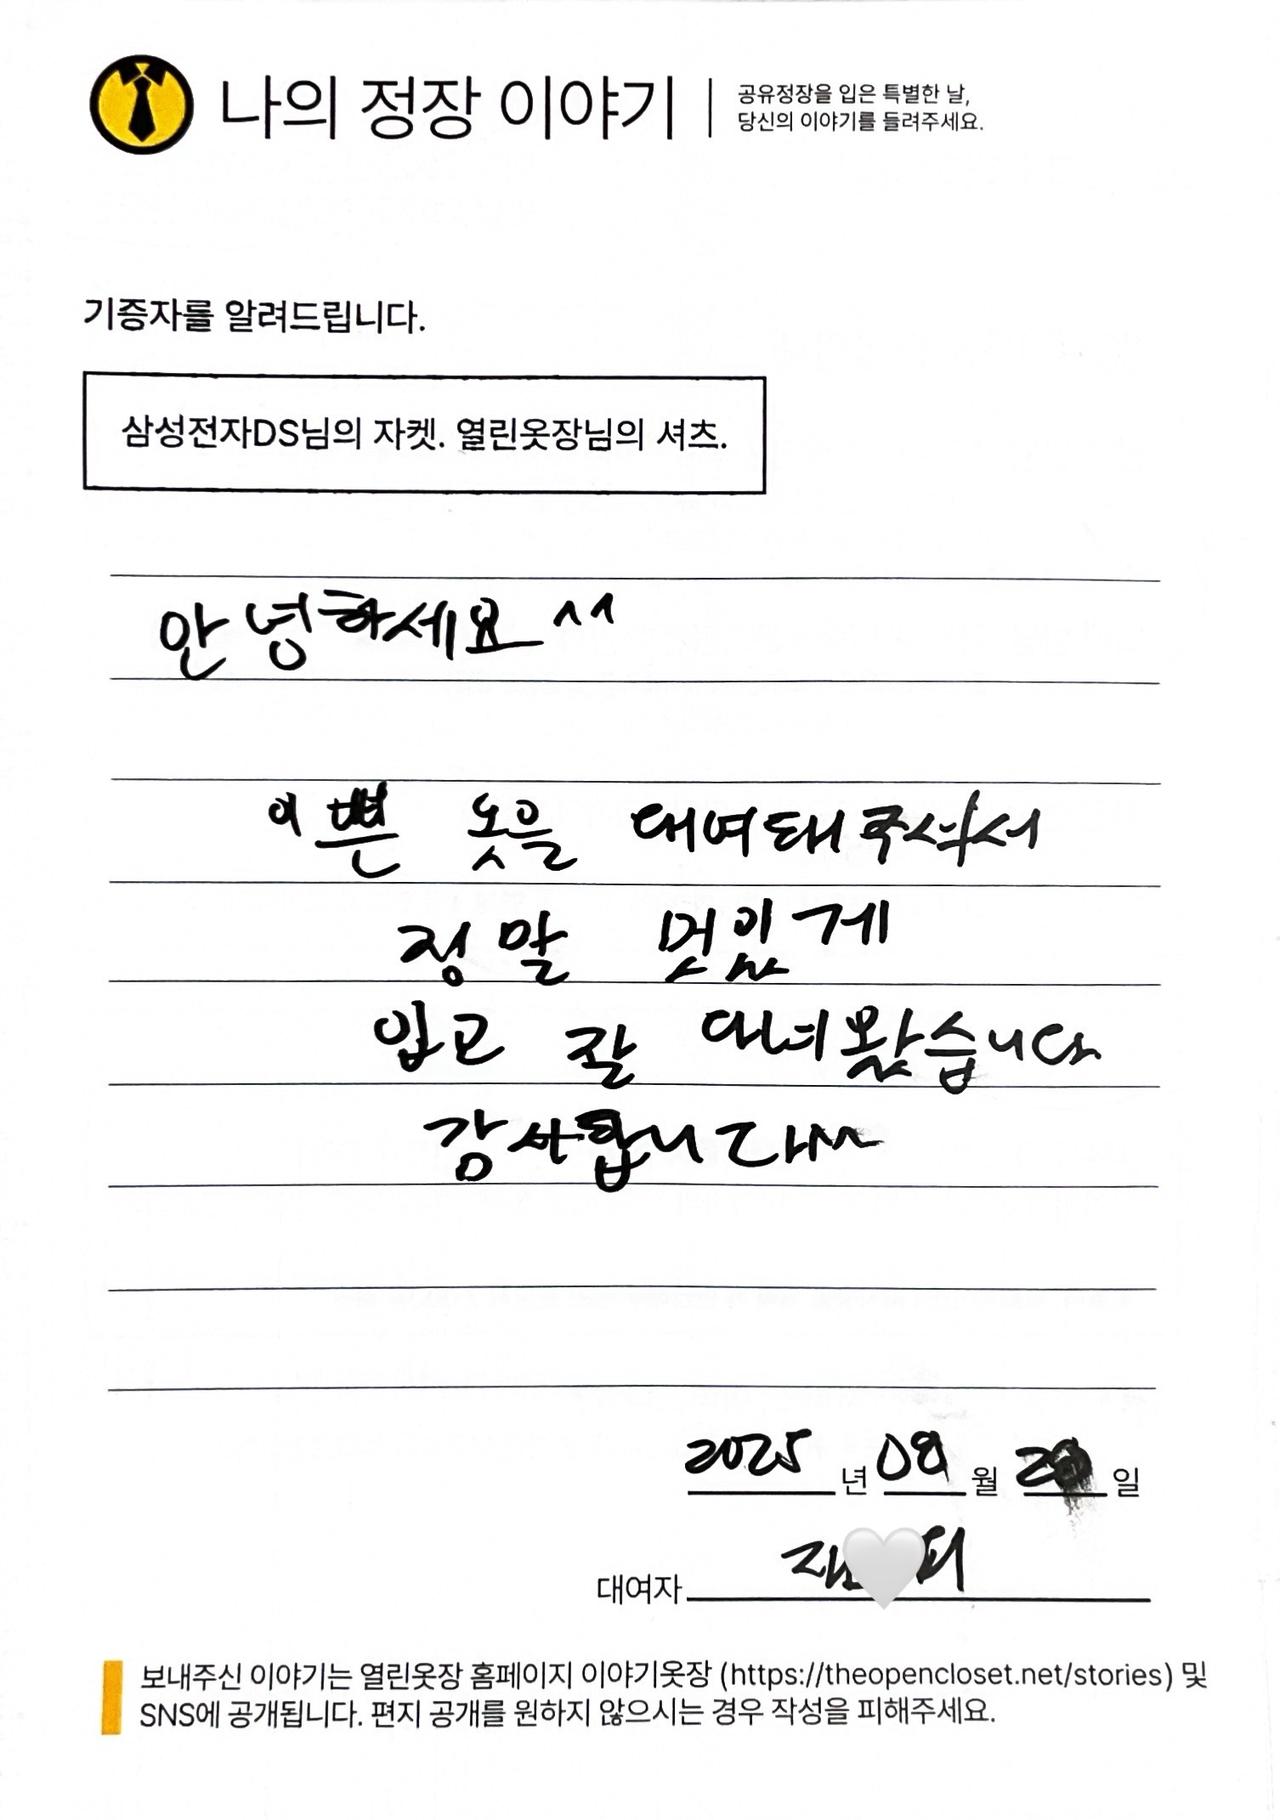 나의 정장 이야기
공유정장을 입은 특별한 날,
당신의 이야기를 들려주세요.
기증자를 알려드립니다.
삼성전자DS님의 자켓. 열린옷장님의 셔츠.
안녕하세요^^
이쁜 옷을 대여해주셔서
정말 멋있게
입고 잘 다녀왔습니다
감사합니다~
2025년 08월 일
대여자
보내주신 이야기는 열린옷장 홈페이지 이야기옷장 (https://theopencloset.net/stories) 및
SNS에 공개됩니다. 편지 공개를 원하지 않으시는 경우 작성을 피해주세요.